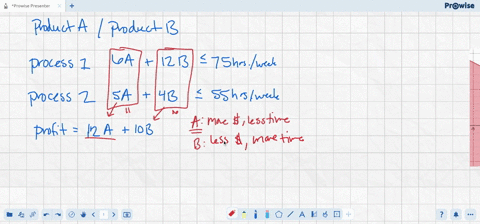 *Prowise Presenter
Prowise
Product A / Product B
process 1 6A + 12B ≤ 75hrs./week
process 2 5A + 4B ≤ 55hrs/week
11
profit = 12A + 10B
A: more $, less time
B: less $, more time